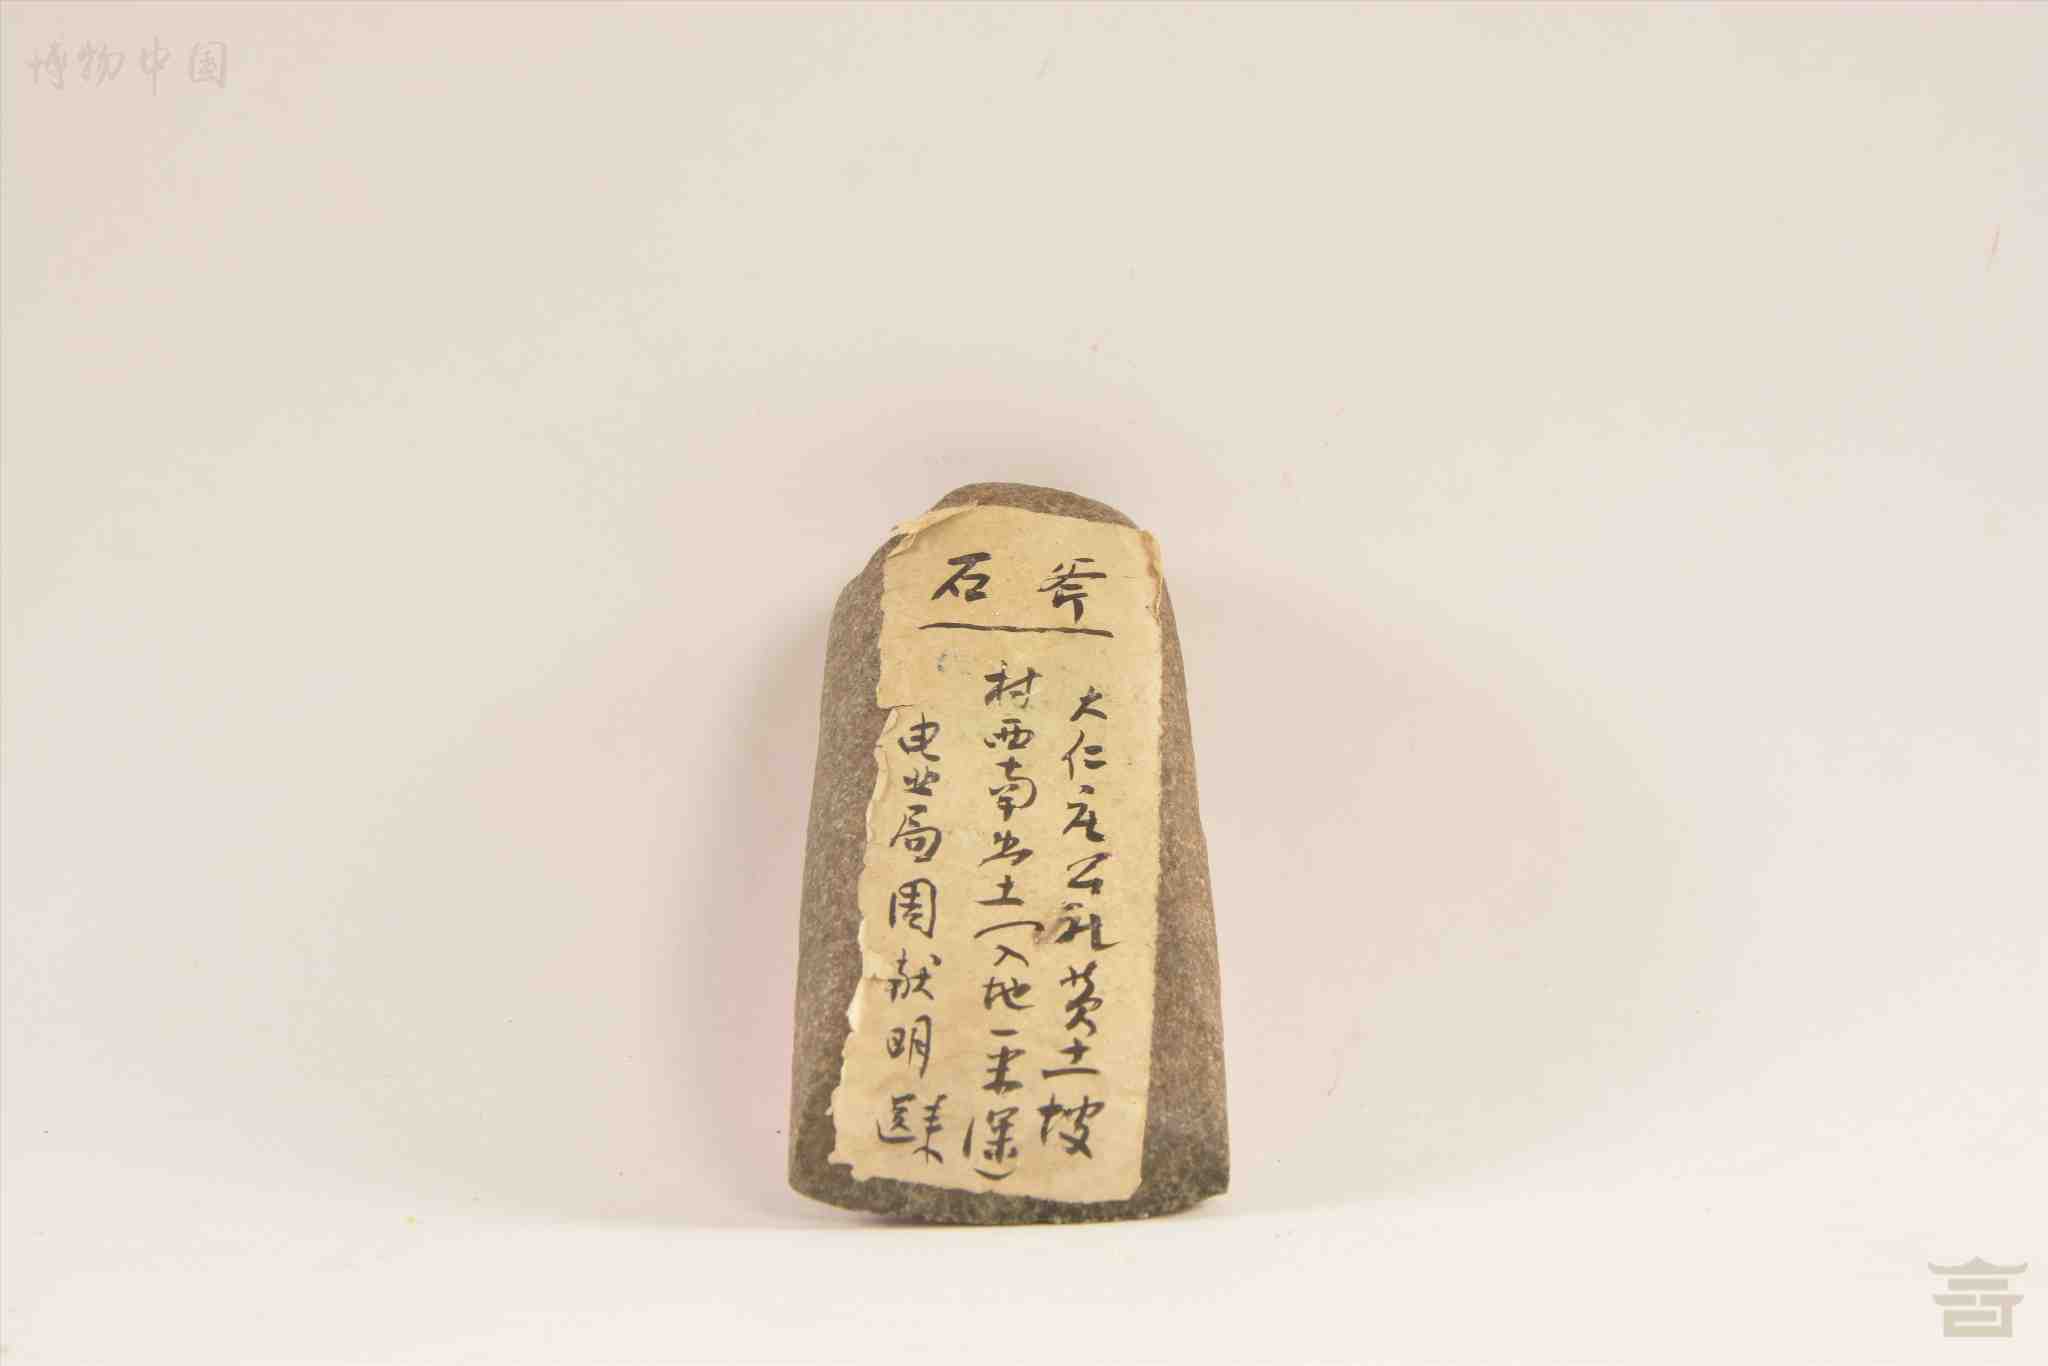 博物中国
石斧
大仁庄公社黄土坡
村西南出土(入地一米深)
电业局周献明送来